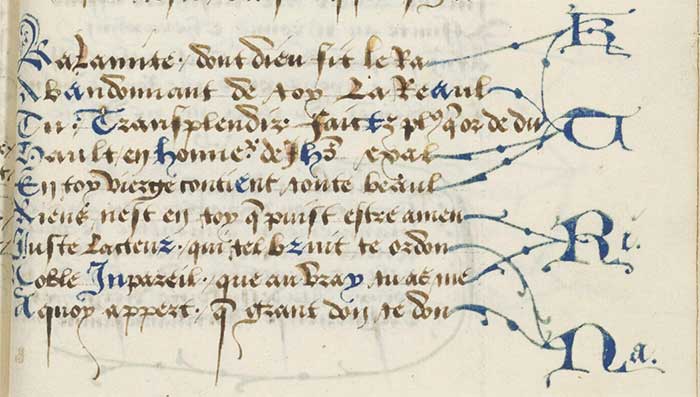 Kalamite, dont dieu fit le Ra
Abandonnant de toy La Reaul
Tu Transplendiz plꝰ q̃ or de du
Hault, en honneʳ de Jhs̃ exal
En toy vierge contient toute beaul
Riens nest en toy q̃ puist estre amen
Juste Lacteur, qui tel bruit te ordon
Noble Inpareil, que au vray tu as me
A quoy appert, q̃ grant don te don
K
T
Ri.
Na.